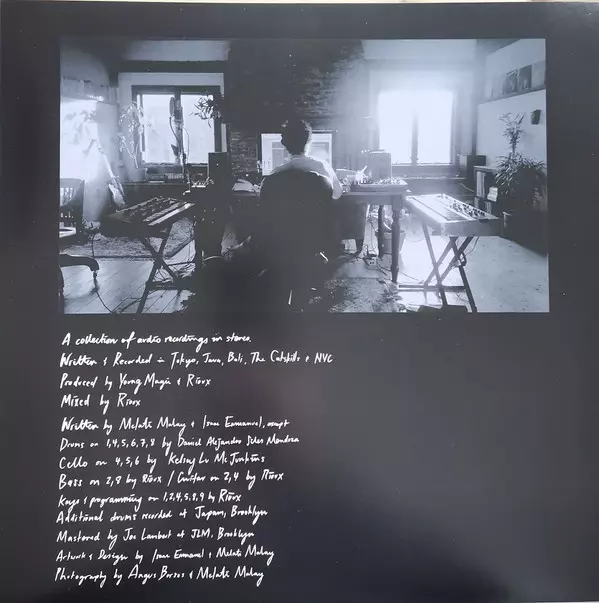 A collection of audio recordings in stereo.
Written & Recorded in Tokyo, Java, Bali, The Catskills & NYC
Produced by Young Magic & Rioux
Mixed by Rioux
Written by Melati Malay & Isaac Emmanuel, except
Drums on 1,4,5,6,7,8 by Daniel Alejandro Siles Mendoza
Cello on 4,5,6 by Kelsey Lu McJunkins
Bass on 2,8 by Rioux / Guitar on 2,4 by Rioux
Keys & programming on 1,2,4,5,8,9 by Rioux
Additional drums recorded at Japam, Brooklyn
Mastered by Joe Lambert at JLM, Brooklyn
Artwork & Design by Isaac Emmanuel & Melati Malay
Photography by Angus & Melati Malay